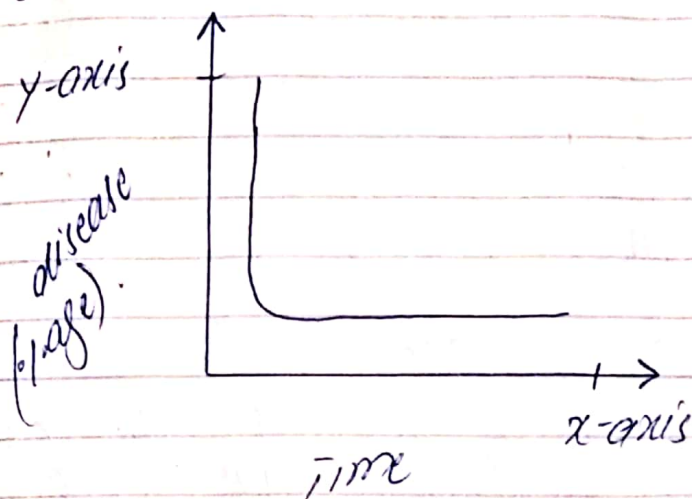 y-axis
disease
(%age)
x-axis
Time